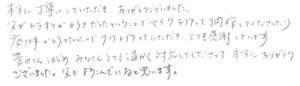 本当に丁寧にしていただき、ありがとうございました。
父がカラオケが好きだったということでマイクを作って納棺してくださったり
庭仕事が好きだったので クワも作っていただき、とても感謝しています
豊田さんはじめ みなさんとても温かく対応してくださって 本当にありがとう
ございました。父もよろこんでいると思います。